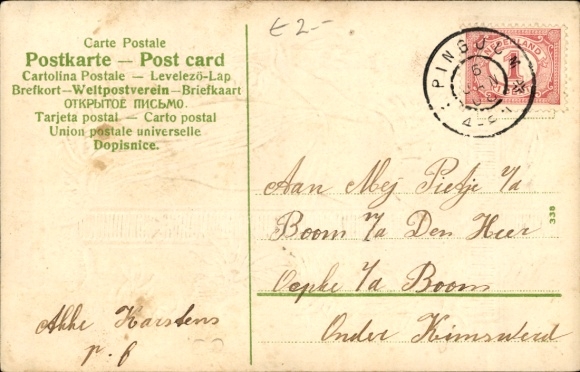 Carte Postale
Postkarte — Post card
Cartolina Postale — Levelező-Lap
Brefkort—Weltpostverein—Briefkaart
ОТКРЫТОЕ ПИСЬМО.
Tarjeta postal — Carto postal
Union postale universelle
Dopisnice.
£ 2.-
NEDERLAND
1
PINGJUM
6
4-8 N
Aan Mej Pietje v/d
Boom v/d Den Heer
Oepke v/d Boom
Onder Kimswerd
338
Akke Karstens
p. f